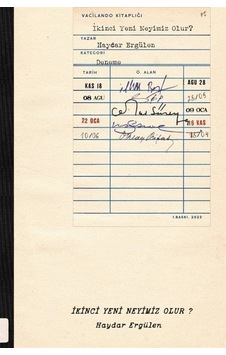 VACİLANDO KİTAPLIĞI
İkinci Yeni Neyimiz Olur?
YAZAR
Haydar Ergülen
KATEGORİ
Deneme
TARİH Ö. ALAN
KAS 18 AGU 28
08 AGU 25/05
Cemal Süreya 09 OCA
22 OCA 16 KAS
10/06
1. BASKI, 2022
İKİNCİ YENİ NEYİMİZ OLUR ?
Haydar Ergülen